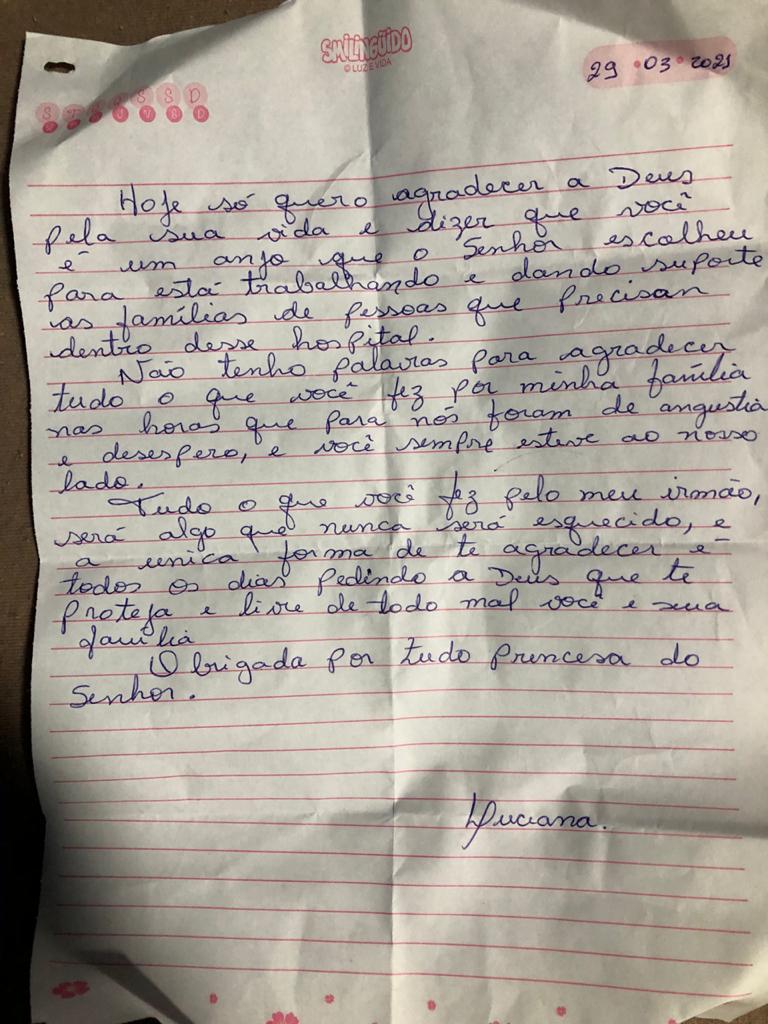 SMILINGÜIDO
© LUZ E VIDA
29 · 03 · 2021
S T Q Q S S D
S T Q J V S D
Hoje só quero agradecer a Deus
pela sua vida e dizer que você
é um anjo que o Senhor escolheu
para está trabalhando e dando suporte
as famílias de pessoas que precisan
dentro desse hospital.
Não tenho palavras para agradecer
tudo o que você fez por minha família
nas horas que para nós foram de angustia
e desespero, e você sempre esteve ao nosso
lado.
Tudo o que você fez pelo meu irmão,
será algo que nunca será esquecido, e
a unica forma de te agradecer é
todos os dias pedindo a Deus que te
proteja e livre de todo mal você e sua
família
Obrigada por tudo princesa do
Senhor.
Luciana.